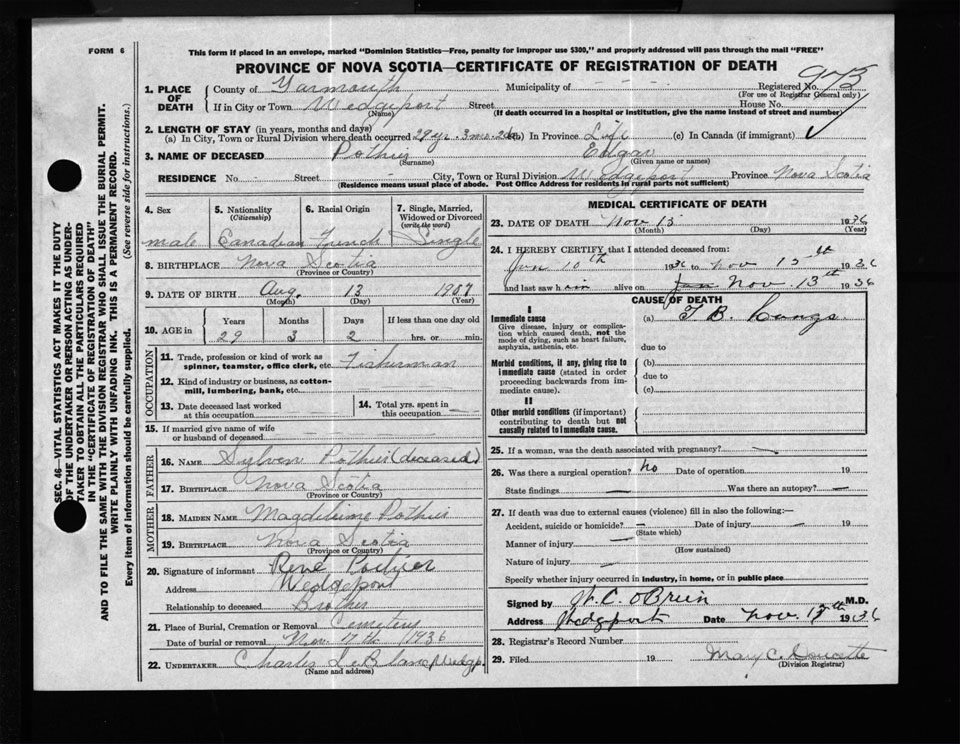 FORM 6
This form if placed in an envelope, marked "Dominion Statistics—Free, penalty for improper use $300," and properly addressed will pass through the mail "FREE"
PROVINCE OF NOVA SCOTIA—CERTIFICATE OF REGISTRATION OF DEATH
973
1. PLACE OF DEATH
County of Yarmouth Municipality of Registered No.
(For use of Registrar General only)
If in City or Town Wedgeport Street House No.
(Name) (If death occurred in a hospital or institution, give the name instead of street and number)
2. LENGTH OF STAY (in years, months and days)
(a) In City, Town or Rural Division where death occurred 29 yr. 3 mo. 2 da (b) In Province Life (c) In Canada (if immigrant)
3. NAME OF DECEASED Pothier Edgar
(Surname) (Given name or names)
RESIDENCE No. Street City, Town or Rural Division Wedgeport Province Nova Scotia
(Residence means usual place of abode. Post Office Address for residents in rural parts not sufficient)
4. Sex
5. Nationality (Citizenship)
6. Racial Origin
7. Single, Married, Widowed or Divorced (write the word)
male Canadian French Single
8. BIRTHPLACE Nova Scotia
(Province or Country)
9. DATE OF BIRTH Aug. 13 1907
(Month) (Day) (Year)
10. AGE in
Years Months Days If less than one day old
29 3 2 hrs. or min.
OCCUPATION
11. Trade, profession or kind of work as spinner, teamster, office clerk, etc. Fisherman
12. Kind of industry or business, as cotton-mill, lumbering, bank, etc.
13. Date deceased last worked at this occupation
14. Total yrs. spent in this occupation
15. If married give name of wife or husband of deceased
FATHER
16. NAME Sylven Pothier (deceased)
17. BIRTHPLACE Nova Scotia
(Province or Country)
MOTHER
18. MAIDEN NAME Pothier
19. BIRTHPLACE Nova Scotia
(Province or Country)
20. Signature of informant René Pothier
Address Wedgeport
Relationship to deceased Brother
21. Place of Burial, Cremation or Removal Cemetery
Date of burial or removal Nov. 17th 1936
22. UNDERTAKER Charles LeBlanc
(Name and address)
MEDICAL CERTIFICATE OF DEATH
23. DATE OF DEATH Nov 15 1936
(Month) (Day) (Year)
24. I HEREBY CERTIFY that I attended deceased from:
Jan 10th 1936 to Nov 15th 1936
and last saw him alive on Jan Nov. 13th 1936
CAUSE OF DEATH
I
Immediate cause
Give disease, injury or complication which caused death, not the mode of dying, such as heart failure, asphyxia, asthenia, etc.
(a) T. B. Lungs
due to
Morbid conditions, if any, giving rise to immediate cause (stated in order proceeding backwards from immediate cause).
(b)
due to
(c)
II
Other morbid conditions (if important) contributing to death but not causally related to immediate cause.
25. If a woman, was the death associated with pregnancy?
26. Was there a surgical operation? no Date of operation 19
State findings Was there an autopsy?
27. If death was due to external causes (violence) fill in also the following:—
Accident, suicide or homicide? Date of injury 19
(State which)
Manner of injury
(How sustained)
Nature of injury
Specify whether injury occurred in industry, in home, or in public place
Signed by W. C. O'Brien M.D.
Address Wedgeport Date Nov. 15th 1936
28. Registrar's Record Number
29. Filed 19 Mary C. Doucette
(Division Registrar)
SEC. 46—VITAL STATISTICS ACT MAKES IT THE DUTY
OF THE UNDERTAKER OR PERSON ACTING AS UNDERTAKER TO OBTAIN ALL THE PARTICULARS REQUIRED
IN THE "CERTIFICATE OF REGISTRATION OF DEATH"
AND TO FILE THE SAME WITH THE DIVISION REGISTRAR WHO SHALL ISSUE THE BURIAL PERMIT.
WRITE PLAINLY WITH UNFADING INK. THIS IS A PERMANENT RECORD.
Every item of information should be carefully supplied. (See reverse side for instructions.)